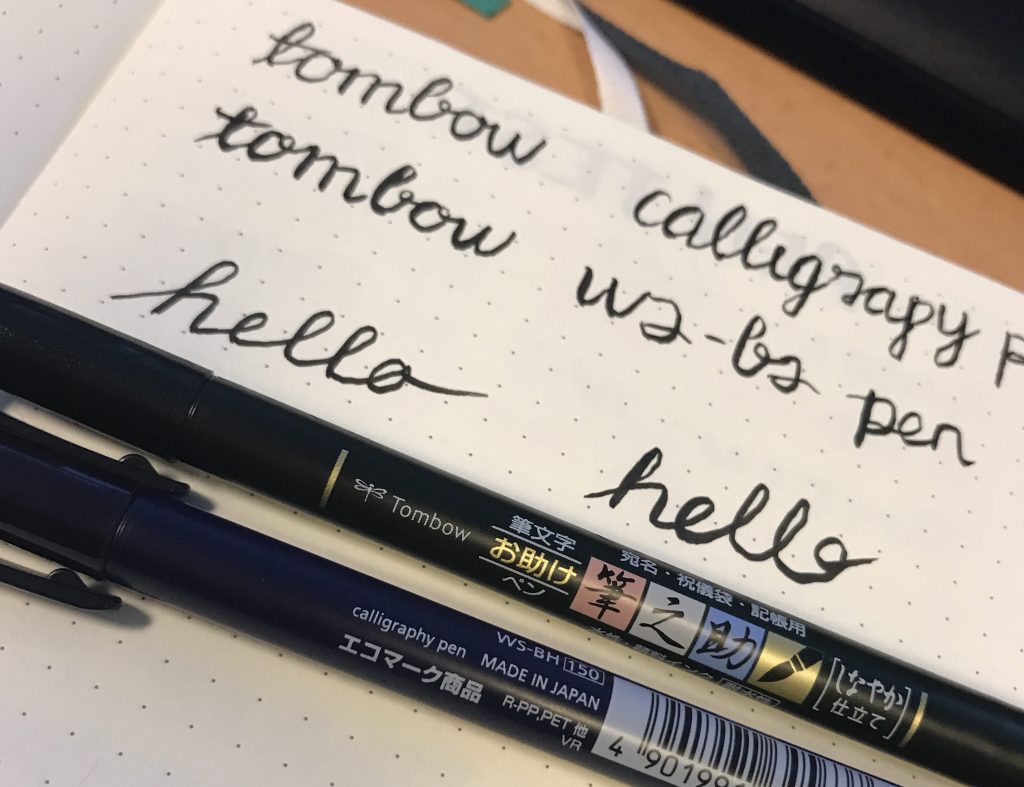 tombow calligrapy p
tombow ws-bs pen
hello
hello
Tombow
筆文字
お助け
ペン
宛名・祝儀袋・記帳用
筆之助
しなやか
仕立て
calligraphy pen WS-BH 150
エコマーク商品 MADE IN JAPAN
R-PP,PET 他
VR
4 90199